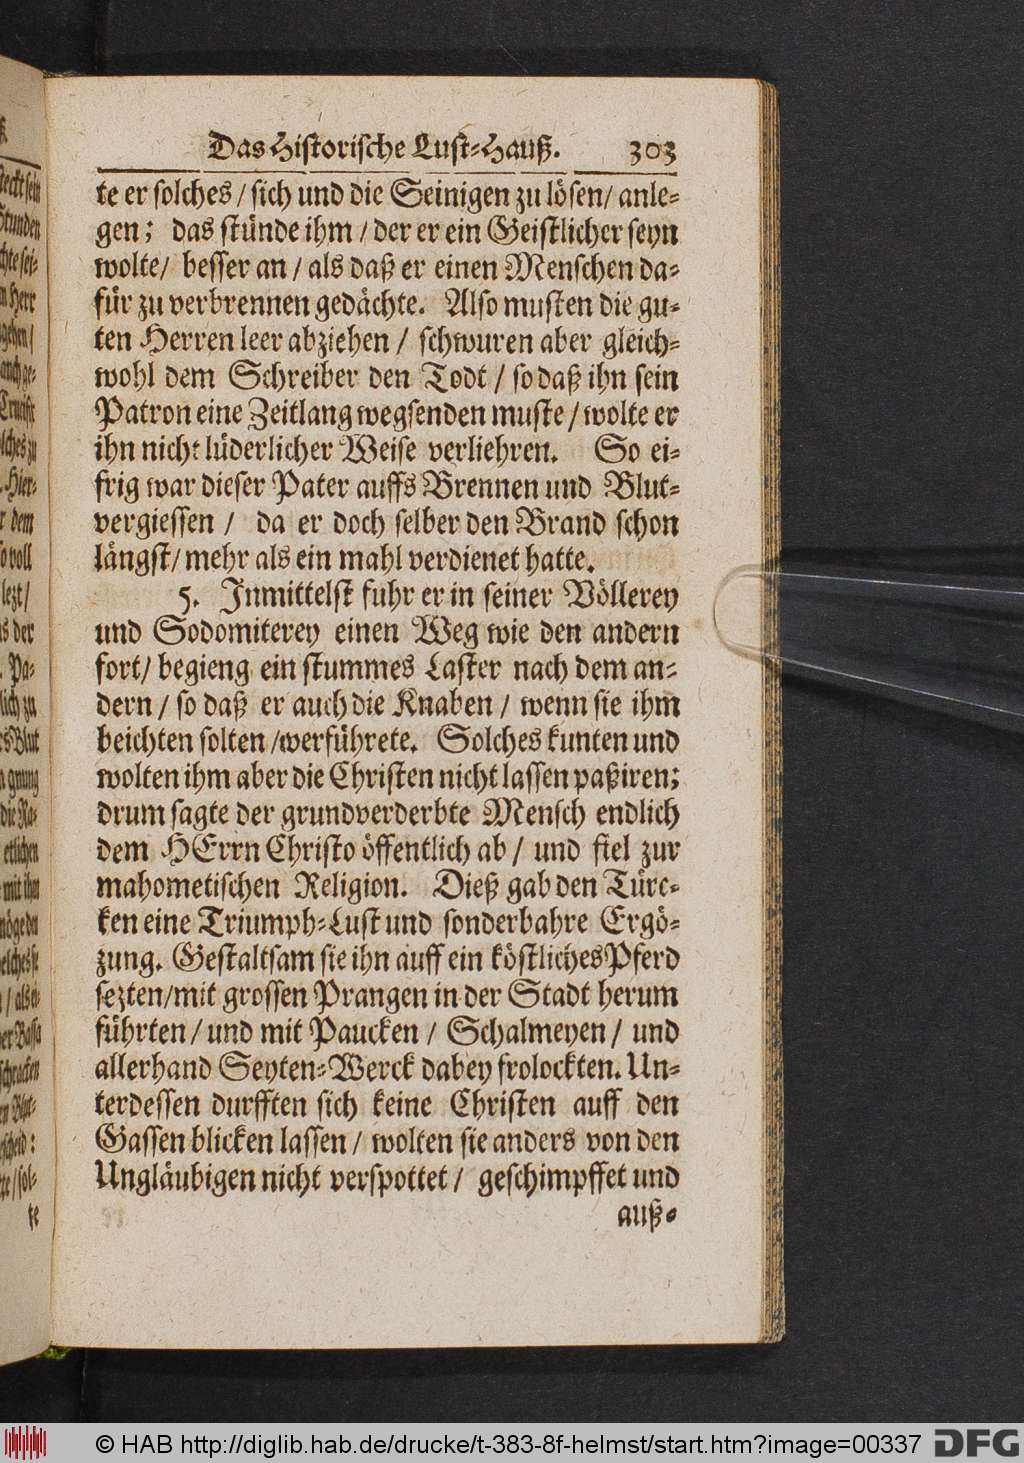 Das Historische Lust-Hauß. 303
te er solches / sich und die Seinigen zu lösen / anle-
gen; das stünde ihm / der er ein Geistlicher seyn
wolte / besser an / als daß er einen Menschen da-
für zu verbrennen gedächte. Also musten die gu-
ten Herren leer abziehen / schwuren aber gleich-
wohl dem Schreiber den Todt / so daß ihn sein
Patron eine Zeitlang wegsenden muste / wolte er
ihn nicht lüderlicher Weise verliehren. So ei-
frig war dieser Pater auffs Brennen und Blut-
vergiessen / da er doch selber den Brand schon
längst / mehr als ein mahl verdienet hatte.
5. Inmittelst fuhr er in seiner Völlerey
und Sodomiterey einen Weg wie den andern
fort / begieng ein stummes Laster nach dem an-
dern / so daß er auch die Knaben / wenn sie ihm
beichten solten / werführete. Solches kunten und
wolten ihm aber die Christen nicht lassen paßiren;
drum sagte der grundverderbte Mensch endlich
dem HErrn Christo öffentlich ab / und fiel zur
mahometischen Religion. Dieß gab den Türc-
ken eine Triumph-Lust und sonderbahre Ergö-
zung. Gestaltsam sie ihn auff ein köstliches Pferd
sezten / mit grossen Prangen in der Stadt herum
führten / und mit Paucken / Schalmeyen / und
allerhand Seyten-Werck dabey frolockten. Un-
terdessen durfften sich keine Christen auff den
Gassen blicken lassen / wolten sie anders von den
Ungläubigen nicht verspottet / geschimpffet und
auß-
© HAB http://diglib.hab.de/drucke/t-383-8f-helmst/start.htm?image=00337 DFG